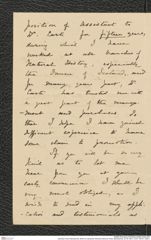 position of Assistant to
Dr. for fifteen years,
during which I have
worked at all branches of
Natural History, especially
the of Scotland, and
for many years past, Dr.
has trusted me with
a great part of the manage-
ment and purchases. So
that I hope I have gained
sufficient experience to have
some claim to promotion.
If you will be so very
kind as to let me
hear from you at your
early convenience I shall be
very much obliged, as I
wish to send in my appli-
-cation and testimonials as